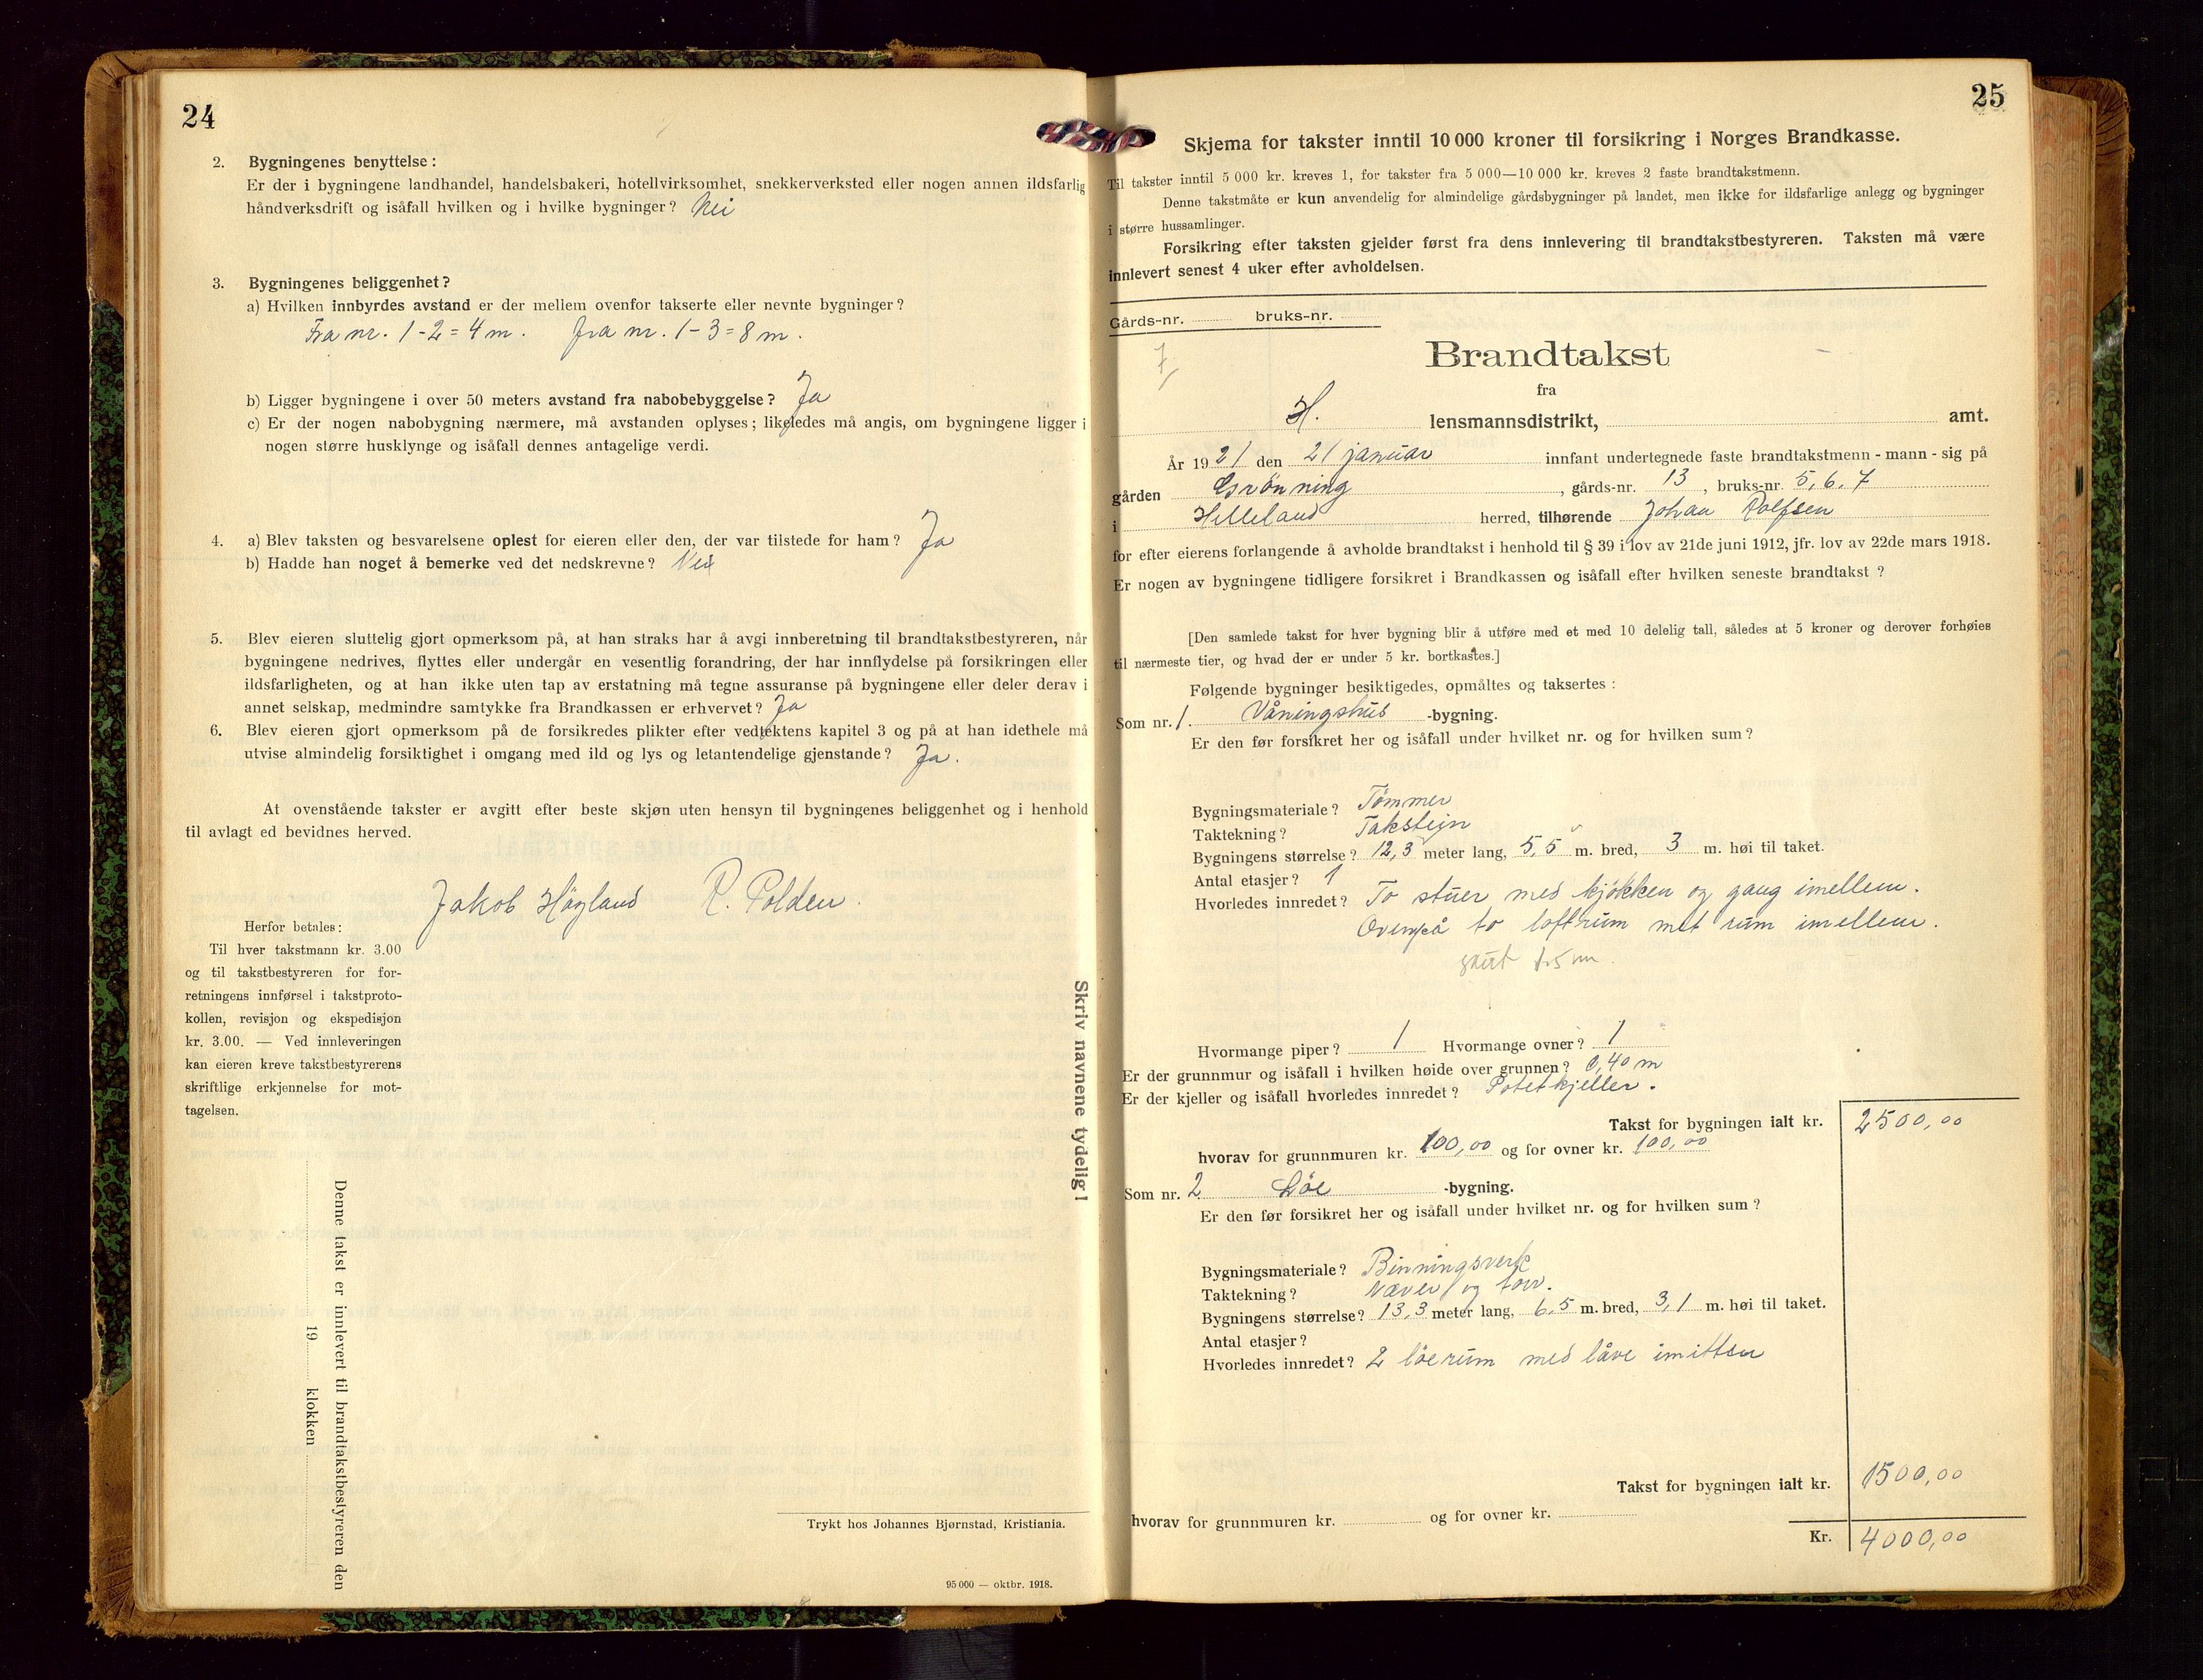 24
2. Bygningenes benyttelse:
Er der i bygningene landhandel, handelsbakeri, hotellvirksomhet, snekkerverksted eller nogen annen ildsfarlig
håndverksdrift og isåfall hvilken og i hvilke bygninger? Nei
3. Bygningenes beliggenhet?
a) Hvilken innbyrdes avstand er der mellem ovenfor takserte eller nevnte bygninger?
Fra nr. 1-2=4 m. fra nr. 1-3=8 m.
b) Ligger bygningene i over 50 meters avstand fra nabobebyggelse? Ja
c) Er der nogen nabobygning nærmere, må avstanden oplyses; likeledes må angis, om bygningene ligger i
nogen større husklynge og isåfall dennes antagelige verdi.
4. a) Blev taksten og besvarelsene oplest for eieren eller den, der var tilstede for ham? Ja
b) Hadde han noget å bemerke ved det nedskrevne? Nei
5. Blev eieren sluttelig gjort opmerksom på, at han straks har å avgi innberetning til brandtakstbestyreren, når
bygningene nedrives, flyttes eller undergår en vesentlig forandring, der har innflydelse på forsikringen eller
ildsfarligheten, og at han ikke uten tap av erstatning må tegne assuranse på bygningene eller deler derav i
annet selskap, medmindre samtykke fra Brandkassen er erhvervet? Ja
6. Blev eieren gjort opmerksom på de forsikredes plikter efter vedtektens kapitel 3 og på at han idethele må
utvise almindelig forsiktighet i omgang med ild og lys og letantendelige gjenstande? Ja.
At ovenstående takster er avgitt efter beste skjøn uten hensyn til bygningenes beliggenhet og i henhold
til avlagt ed bevidnes herved.
Jakob Høgland R. Polden.
Herfor betales:
Til hver takstmann kr. 3.00
og til takstbestyreren for for-
retningens innførsel i takstproto-
kollen, revisjon og ekspedisjon
kr. 3.00. — Ved innleveringen
kan eieren kreve takstbestyrerens
skriftlige erkjennelse for mot-
tagelsen.
Skriv navnene tydelig!
Denne takst er innlevert til brandtakstbestyreren den
19 klokken
Trykt hos Johannes Bjørnstad, Kristiania.
95 000 — oktbr. 1918.
25
Skjema for takster inntil 10 000 kroner til forsikring i Norges Brandkasse.
Til takster inntil 5 000 kr. kreves 1, for takster fra 5 000—10 000 kr. kreves 2 faste brandtakstmenn.
Denne takstmåte er kun anvendelig for almindelige gårdsbygninger på landet, men ikke for ildsfarlige anlegg og bygninger
i større hussamlinger.
Forsikring efter taksten gjelder først fra dens innlevering til brandtakstbestyreren. Taksten må være
innlevert senest 4 uker efter avholdelsen.
Gårds-nr. bruks-nr.
7
Brandtakst
fra
H. lensmannsdistrikt, amt.
År 1921 den 21 januar innfant undertegnede faste brandtakstmenn - mann - sig på
gården Grönning, gårds-nr. 13, bruks-nr. 5, 6, 7
i Helleland herred, tilhørende Johan Rolfsen
for efter eierens forlangende å avholde brandtakst i henhold til § 39 i lov av 21de juni 1912, jfr. lov av 22de mars 1918.
Er nogen av bygningene tidligere forsikret i Brandkassen og isåfall efter hvilken seneste brandtakst?
[Den samlede takst for hver bygning blir å utføre med et med 10 delelig tall, således at 5 kroner og derover forhøies
til nærmeste tier, og hvad der er under 5 kr. bortkastes.]
Følgende bygninger besiktigedes, opmåltes og taksertes:
Som nr. 1. Våningshus -bygning.
Er den før forsikret her og isåfall under hvilket nr. og for hvilken sum?
Bygningsmateriale? Tömmer
Taktekning? Takstein
Bygningens størrelse? 12,3 meter lang, 5,5 m. bred, 3 m. høi til taket.
Antal etasjer? 1
Hvorledes innredet? To stuer med kjøkken og gang imellem.
Ovenpå to loftrum met rum imellem.
skut 1.5 m.
Hvormange piper? 1 Hvormange ovner? 1
Er der grunnmur og isåfall i hvilken høide over grunnen? 0,40 m
Er der kjeller og isåfall hvorledes innredet? Potetkjeller.
Takst for bygningen ialt kr. 2500,00
hvorav for grunnmuren kr. 100,00 og for ovner kr. 100,00
Som nr. 2 Löe -bygning.
Er den før forsikret her og isåfall under hvilket nr. og for hvilken sum?
Bygningsmateriale? Binningsverk
Taktekning? Næver og torv.
Bygningens størrelse? 13,3 meter lang, 6,5 m. bred, 3,1 m. høi til taket.
Antal etasjer?
Hvorledes innredet? 2 löerum med låve imitten
Takst for bygningen ialt kr. 1500,00
hvorav for grunnmuren kr. og for ovner kr.
Kr. 4000,00